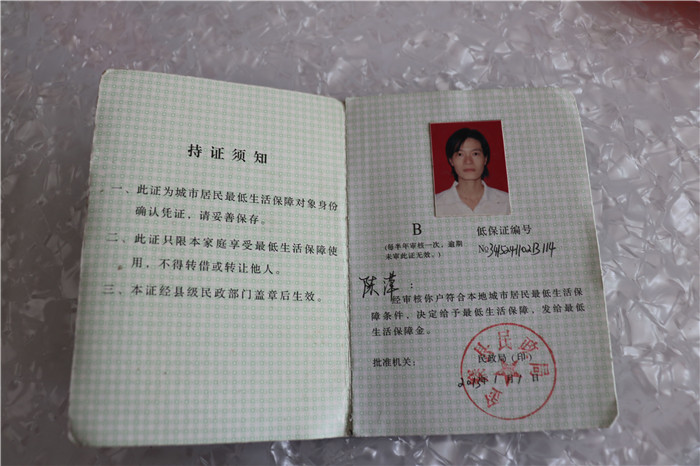 持证须知
一、此证为城市居民最低生活保障对象身份
确认凭证，请妥善保存。
二、此证只限本家庭享受最低生活保障使
用，不得转借或转让他人。
三、本证经县级民政部门盖章后生效。
B
(每半年审核一次，逾期
未审此证无效。)
低保证编号
No3415241102B114
陈：
经审核你户符合本地城市居民最低生活保
障条件，决定给予最低生活保障，发给最低
生活保障金。
批准机关：
民政局（印）
金寨县民政局
年1月1日